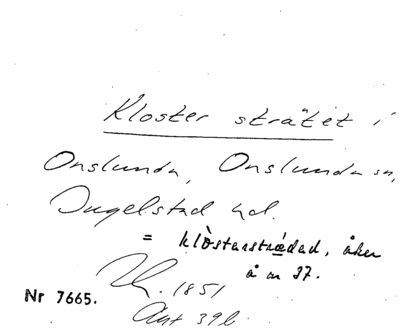 Kloster strätet i
Onslunda, Onslunda sn,
Ingelstad hd.
= klòstarstrædad, åker
å nr 37.
1851
Nr 7665.
Ant 39b